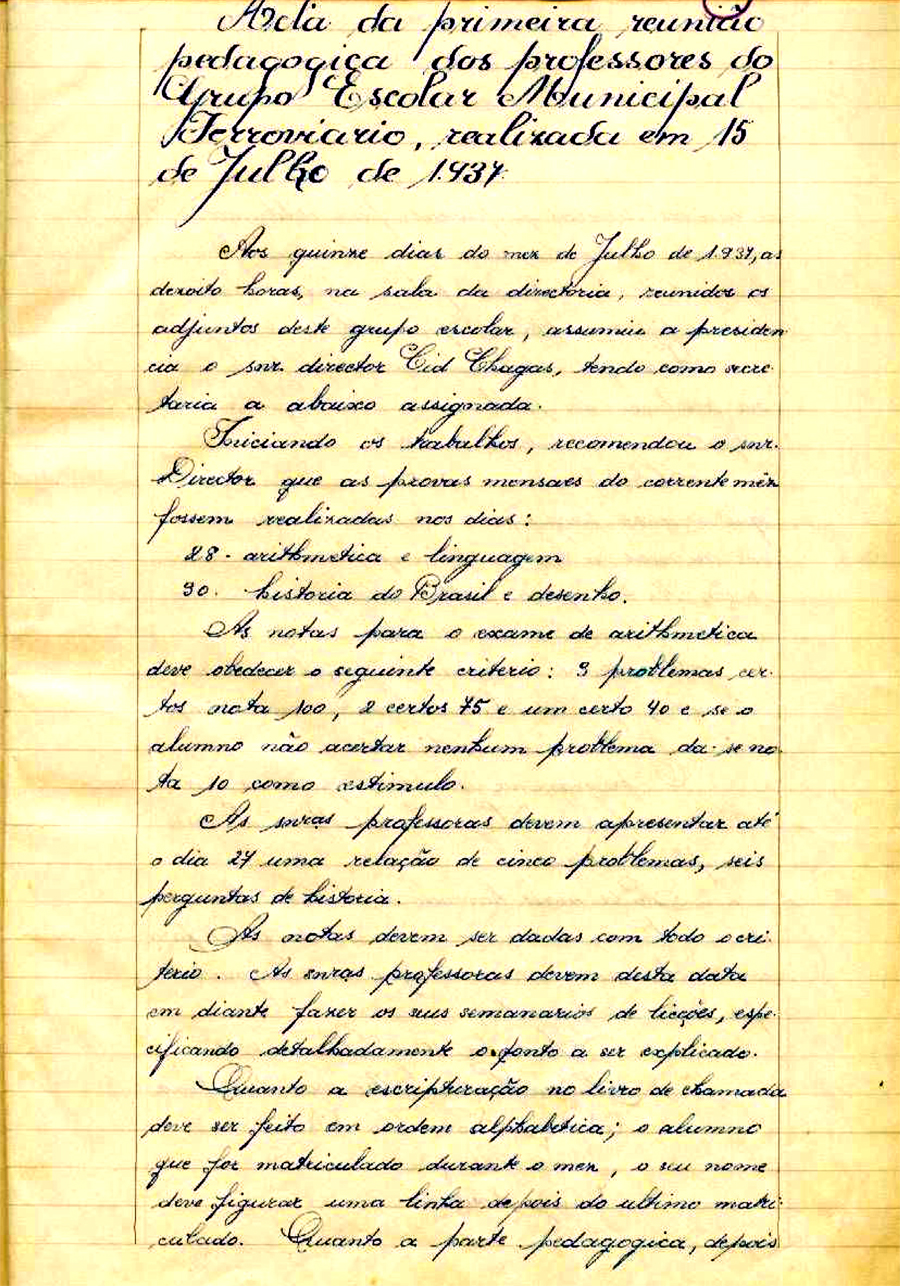 Acta da primeira reunião
pedagogica dos professores do
Grupo Escolar Municipal
Ferroviario, realizada em 15
de Julho de 1.937
Aos quinze dias do mez de Julho de 1.937, as
dezoito horas, na sala da directoria, reunidos os
adjuntos deste grupo escolar, assumiu a presiden
cia o snr. director Cid Chagas, tendo como secre-
taria a abaixo assignada.
Iniciando os trabalhos, recomendou o snr.
Director que as provas mensaes do corrente mêz
fossem realizadas nos dias:
28. arithmetica e linguagem
30. historia do Brasil e desenho.
As notas para o exame de arithmetica
deve obedecer o seguinte criterio: 3 problemas cer-
tos nota 100, 2 certos 75 e um certo 40 e se o
alumno não acertar nenhum problema da-se no-
ta 10 como estimulo.
As snras professoras devem apresentar até
o dia 27 uma relação de cinco problemas, seis
perguntas de historia.
As notas devem ser dadas com todo o cri-
terio. As snras professoras devem desta data
em diante fazer os seus semanarios de licções, espe-
cificando detalhadamente o ponto a ser explicado.
Quanto a escripturação no livro de chamada
deve ser feito em ordem alphabetica; o alumno
que for matriculado durante o mez, o seu nome
deve figurar uma linha depois do ultimo matri-
culado. Quanto a parte pedagogica, depois